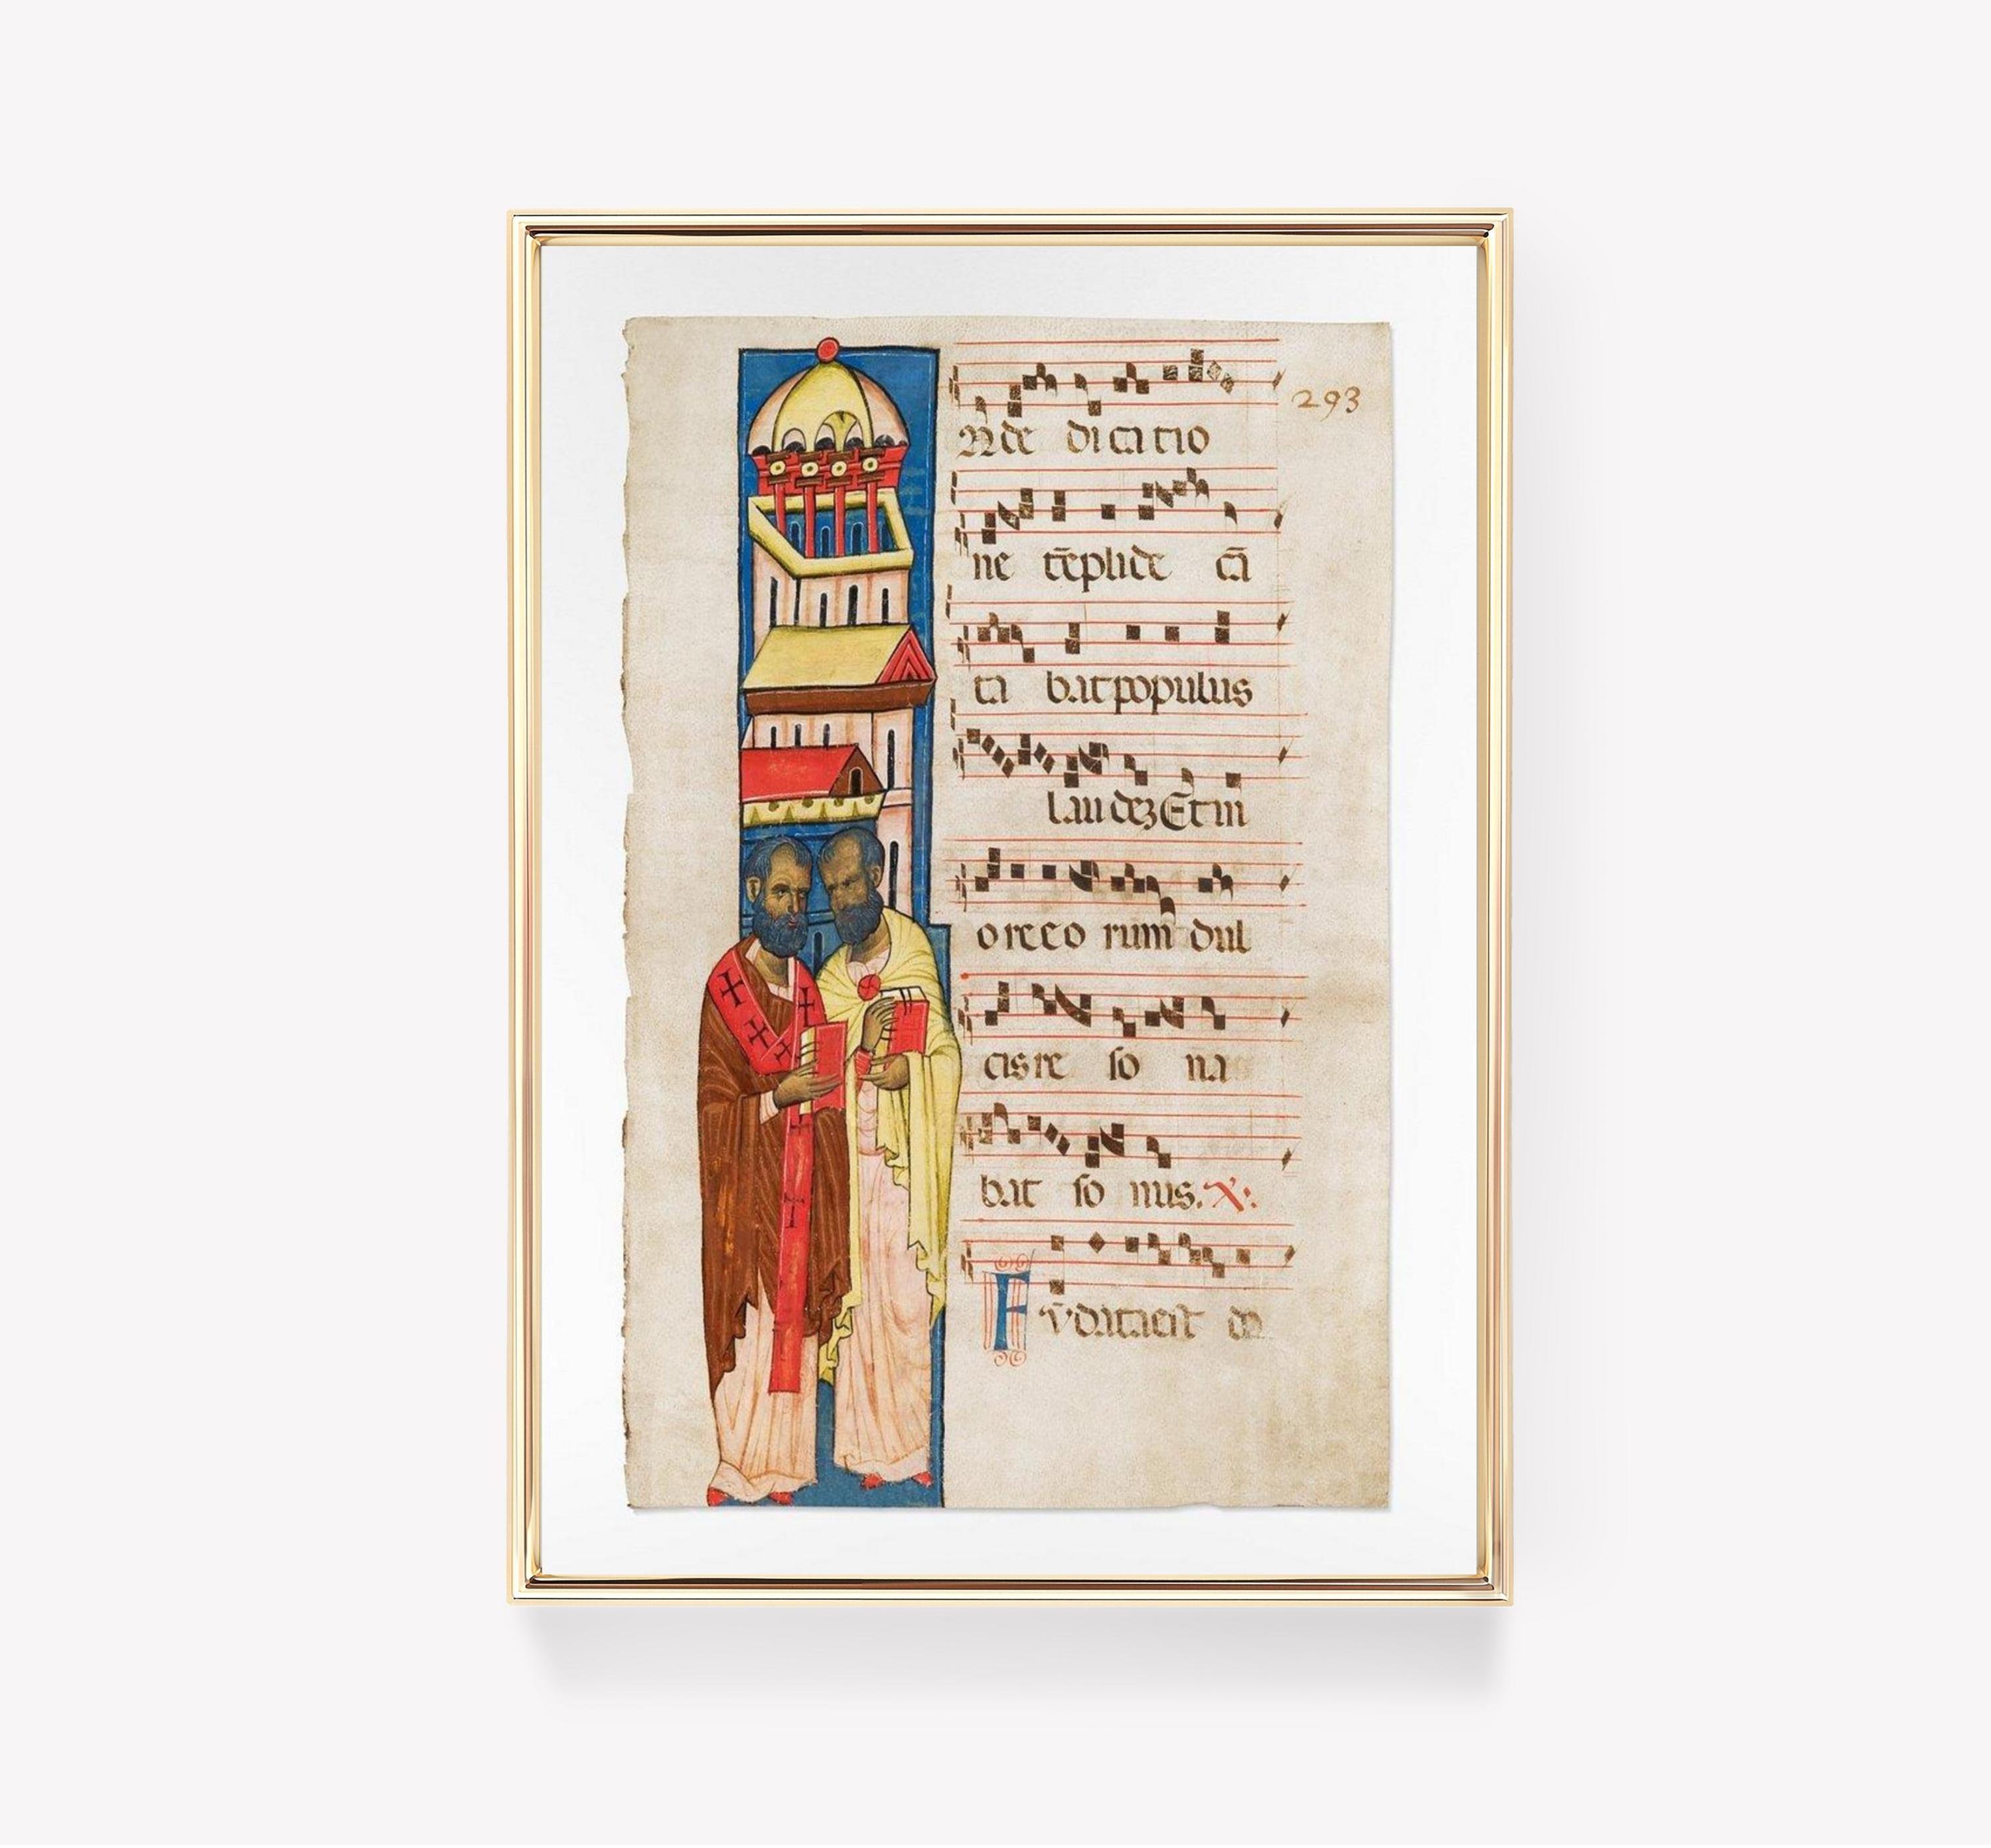 293
N de di ca tio
ne tēplide cā
ta bat populus
lau dez Et in
ore eo rum dul
cis re so na
bat so nus. ℣.
F v̄data est do